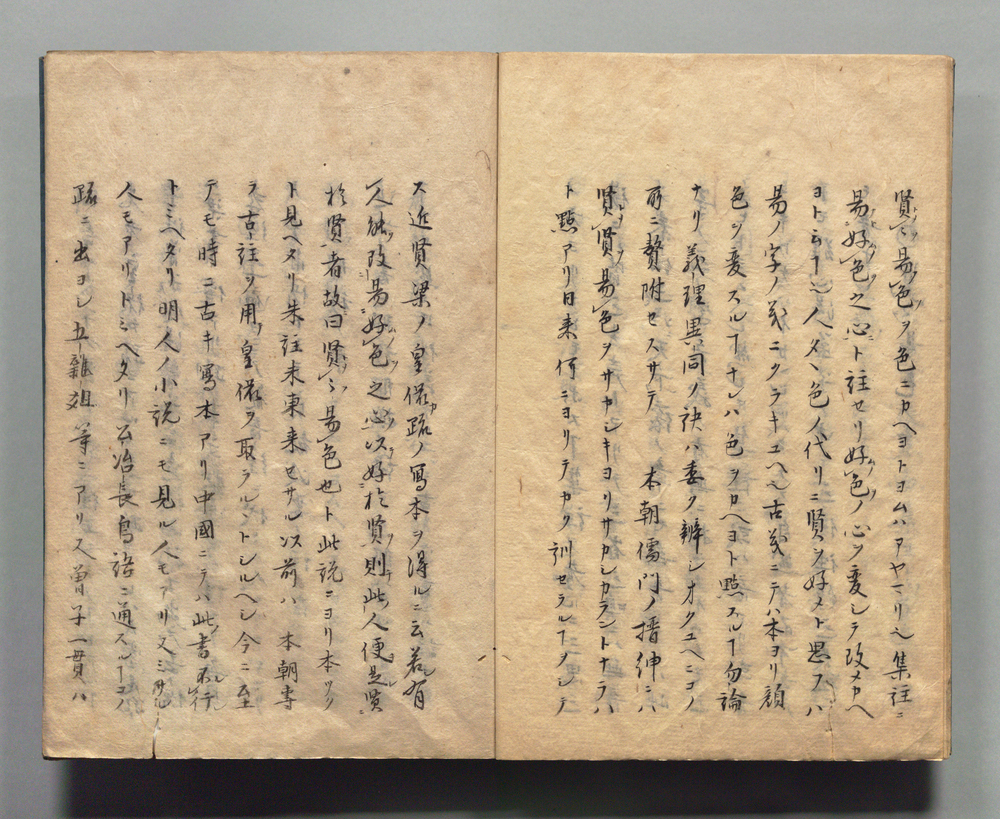 賢々易色ヲ色ニカヘヨトヨムハアヤマリ也集註ニ
易好色之心ト註セリ好色ノ心ヲ変シテ改メカヘ
ヨト云ヿ也人々色ノ代リニ賢ヲ好メト思スハ
易ノ字ノ義ニクラキユヘ也古義ニテハ本ヨリ顔
色ヲ変スルヿナレハ色ヲカヘヨト點スルヿ勿論
ナリ義理異同ノ訣ハ委ク辨シオクユヘニコノ
所ニ贅附セスサテ 本朝儒門ノ搢紳ニハ
賢賢易色ヲサカシキヨリサカシカラントナラハ
ト點アリ日来何ニヨリテカク訓セラルヿヲシラ
ス近賢梁ノ皇侃疏ノ寫本ヲ得ルニ云若有
人能改易好色之心以好於賢則此人便是賢
於賢者故曰賢々易色也ト此説ニヨリ本ツク
ト見ヘタリ朱註未東来セサル以前ハ 本朝専
ラ古註ヲ用皇侃ヲ取ラルヽトシルヘシ今ニ至
テモ時ニ古キ寫本アリ中國ニテハ此書不行
トミヘタリ明人ノ小説ニモ見ル人モアリ又ミサル
人モアリトミヘタリ公冶長鳥語ニ通スルヿコノ
疏ニ出ヨシ五雜俎等ニアリ又曽子一貫ハ